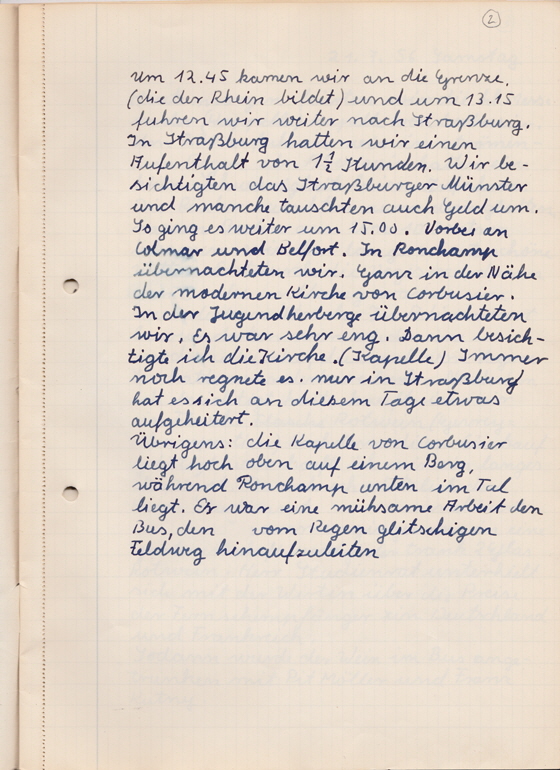 2
Um 12.45 kamen wir an die Grenze.
(die der Rhein bildet) und um 13.15
fuhren wir weiter nach Straßburg.
In Straßburg hatten wir einen
Aufenthalt von 1½ Stunden. Wir be-
sichtigten das Straßburger Münster
und manche tauschten auch Geld um.
So ging es weiter um 15.00. Vorbei an
Colmar und Belfort. In Ronchamp
übernachteten wir. Ganz in der Nähe
der modernen Kirche von Corbusier.
In der Jugendherberge übernachteten
wir. Es war sehr eng. Dann besich-
tigte ich die Kirche. (Kapelle) Immer
noch regnete es. nur in Straßburg
hat es sich an diesem Tage etwas
aufgeheitert.
Übrigens: die Kapelle von Corbusier
liegt hoch oben auf einem Berg,
während Ronchamp unten im Tal
liegt. Es war eine mühsame Arbeit den
Bus, den vom Regen glitschigen
Feldweg hinaufzuleiten